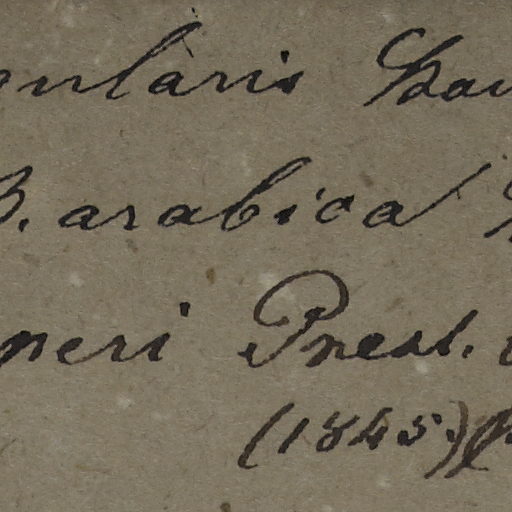 ularis
B. arabica
neri Presl.
(1845)